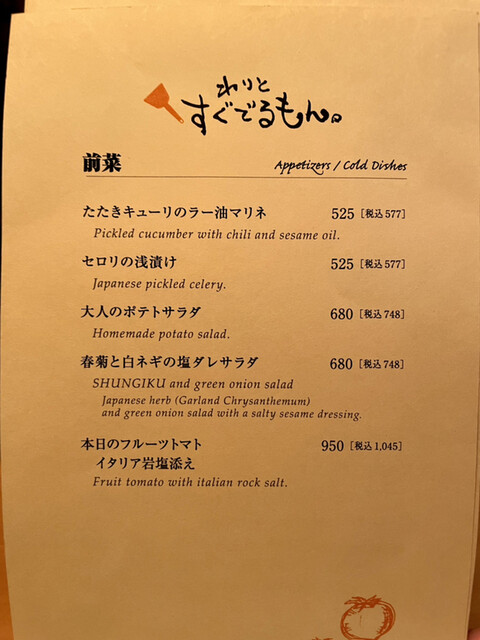 わりと
すぐでるもん。
前菜 Appetizers / Cold Dishes
たたきキューリのラー油マリネ 525 [税込577]
Pickled cucumber with chili and sesame oil.
セロリの浅漬け 525 [税込577]
Japanese pickled celery.
大人のポテトサラダ 680 [税込748]
Homemade potato salad.
春菊と白ネギの塩ダレサラダ 680 [税込748]
SHUNGIKU and green onion salad
Japanese herb (Garland Chrysanthemum)
and green onion salad with a salty sesame dressing.
本日のフルーツトマト 950 [税込1,045]
イタリア岩塩添え
Fruit tomato with italian rock salt.